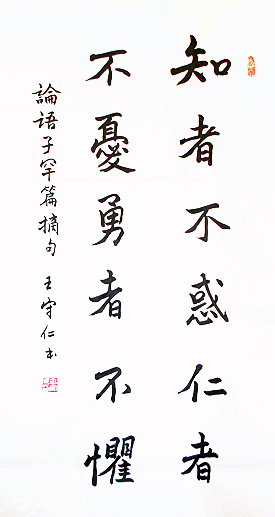 知者不惑仁者
不憂勇者不懼
論語子罕篇摘句 王守仁书